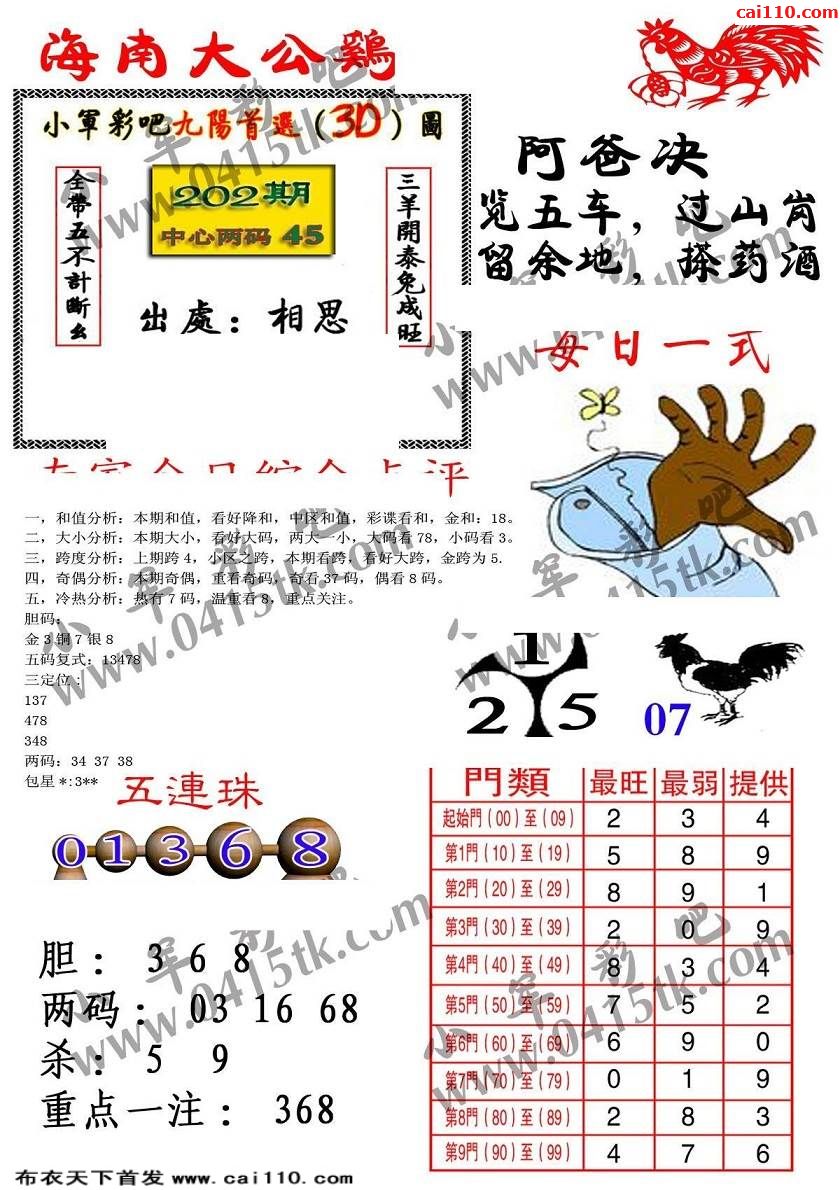 cai110.com
海南大公鷄
小軍彩吧九陽首選（3D）圖
全帶五不計斷幺
202期
中心两码 45
三羊開泰兔成旺
出處：相思
阿爸决
览五车，过山岗
留余地，搽药酒
每日一式
一，和值分析：本期和值，看好降和，中区和值，彩谍看和，金和：18。
二，大小分析：本期大小，看好大码，两大一小，大码看78，小码看3。
三，跨度分析：上期跨4，小区之跨，本期看跨，看好大跨，金跨为5.
四，奇偶分析：本期奇偶，重看奇码，奇看37码，偶看8码。
五，冷热分析：热有7码，温重看8，重点关注。
胆码：
金3铜7银8
五码复式：13478
三定位：
137
478
348
两码：34 37 38
包星*:3**
1
2 5
07
五連珠
0 1 3 6 8
胆： 3 6 8
两码： 03 16 68
杀： 5 9
重点一注： 368
門類 最旺 最弱 提供
起始門（00）至（09） 2 3 4
第1門（10）至（19） 5 8 9
第2門（20）至（29） 8 9 1
第3門（30）至（39） 2 0 9
第4門（40）至（49） 8 3 4
第5門（50）至（59） 7 5 2
第6門（60）至（69） 6 9 0
第7門（70）至（79） 0 1 9
第8門（80）至（89） 2 8 3
第9門（90）至（99） 4 7 6
布衣天下首发 www.cai110.com
小军彩吧
www.0415tk.com
小军彩吧
www.0415tk.com
小军彩吧
www.0415tk.com
小军彩吧
www.0415tk.com